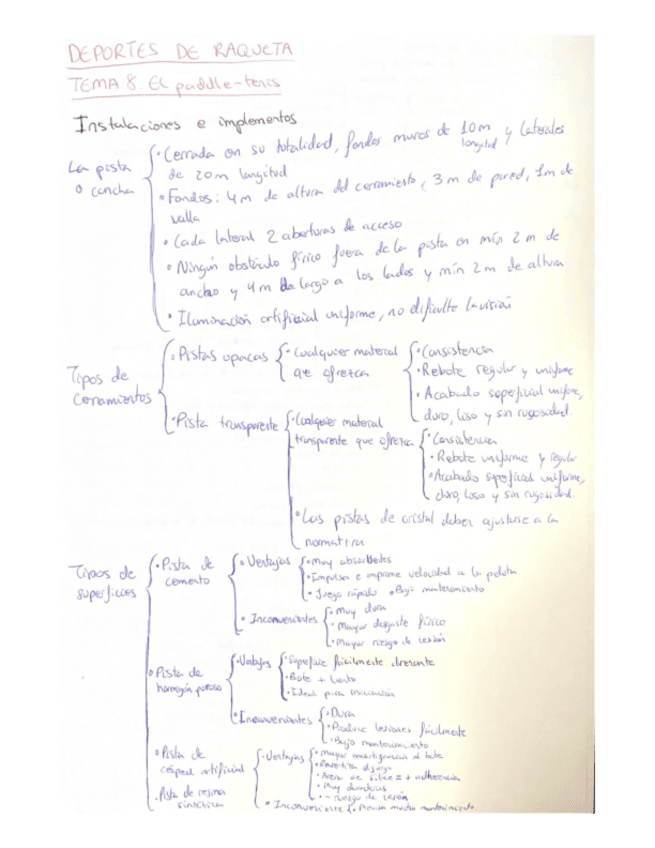 DEPORTES DE RAQUETA
TEMA 8. El paddle-tenis
Instalaciones e implementos
La pista
o cancha
· Cerrada en su totalidad, fondos muros de 10m longitud y laterales
de 20m longitud
· Fondos: 4m de altura del cerramiento, 3m de pared, 1m de
valla
· Cada lateral 2 aberturas de acceso
· Ningún obstáculo físico fuera de la pista en mín 2m de
ancho y 4m de largo a los lados y mín 2m de altura
· Iluminación artificial uniforme, no dificulte la visión
Tipos de
cerramientos
· Pistas opacas
· Cualquier material
que ofrezca
· Consistencia
· Rebote regular y uniforme
· Acabado superficial uniforme,
duro, liso y sin rugosidad
· Pista transparente
· Cualquier material
transparente que ofrezca
· Consistencia
· Rebote uniforme y regular
· Acabado superficial uniforme,
duro, liso y sin rugosidad.
· Las pistas de cristal deben ajustarse a la
normativa
Tipos de
superficies
· Pista de
cemento
· Ventajas
· Muy
· Impulsa e imprime velocidad a la pelota
· Juego rápido · Bajo mantenimiento
· Inconvenientes
· Muy dura
· Mayor desgaste físico
· Mayor riesgo de lesión
· Pista de
hormigón poroso
· Ventajas
· Superficie fácilmente drenante
· Bote + lento
· Ideal para iniciación
· Inconvenientes
· Dura
· Produce lesiones fácilmente
· Bajo mantenimiento
· Pista de
césped artificial
· Pista de resina
sintética
· Ventajas
· Mayor al bote
· Arena de sílice = + adherencia
· Muy duraderas
· - riesgo de lesión
· Inconveniente
· mucho mantenimiento